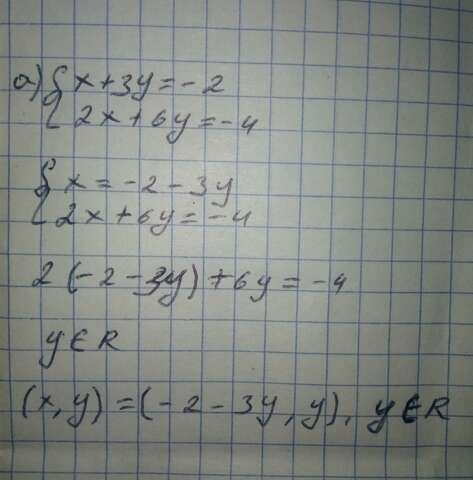 а) { x + 3y = -2
{ 2x + 6y = -4
{ x = -2 - 3y
{ 2x + 6y = -4
2(-2 - 3y) + 6y = -4
y ∈ R
(x, y) = (-2 - 3y, y), y ∈ R